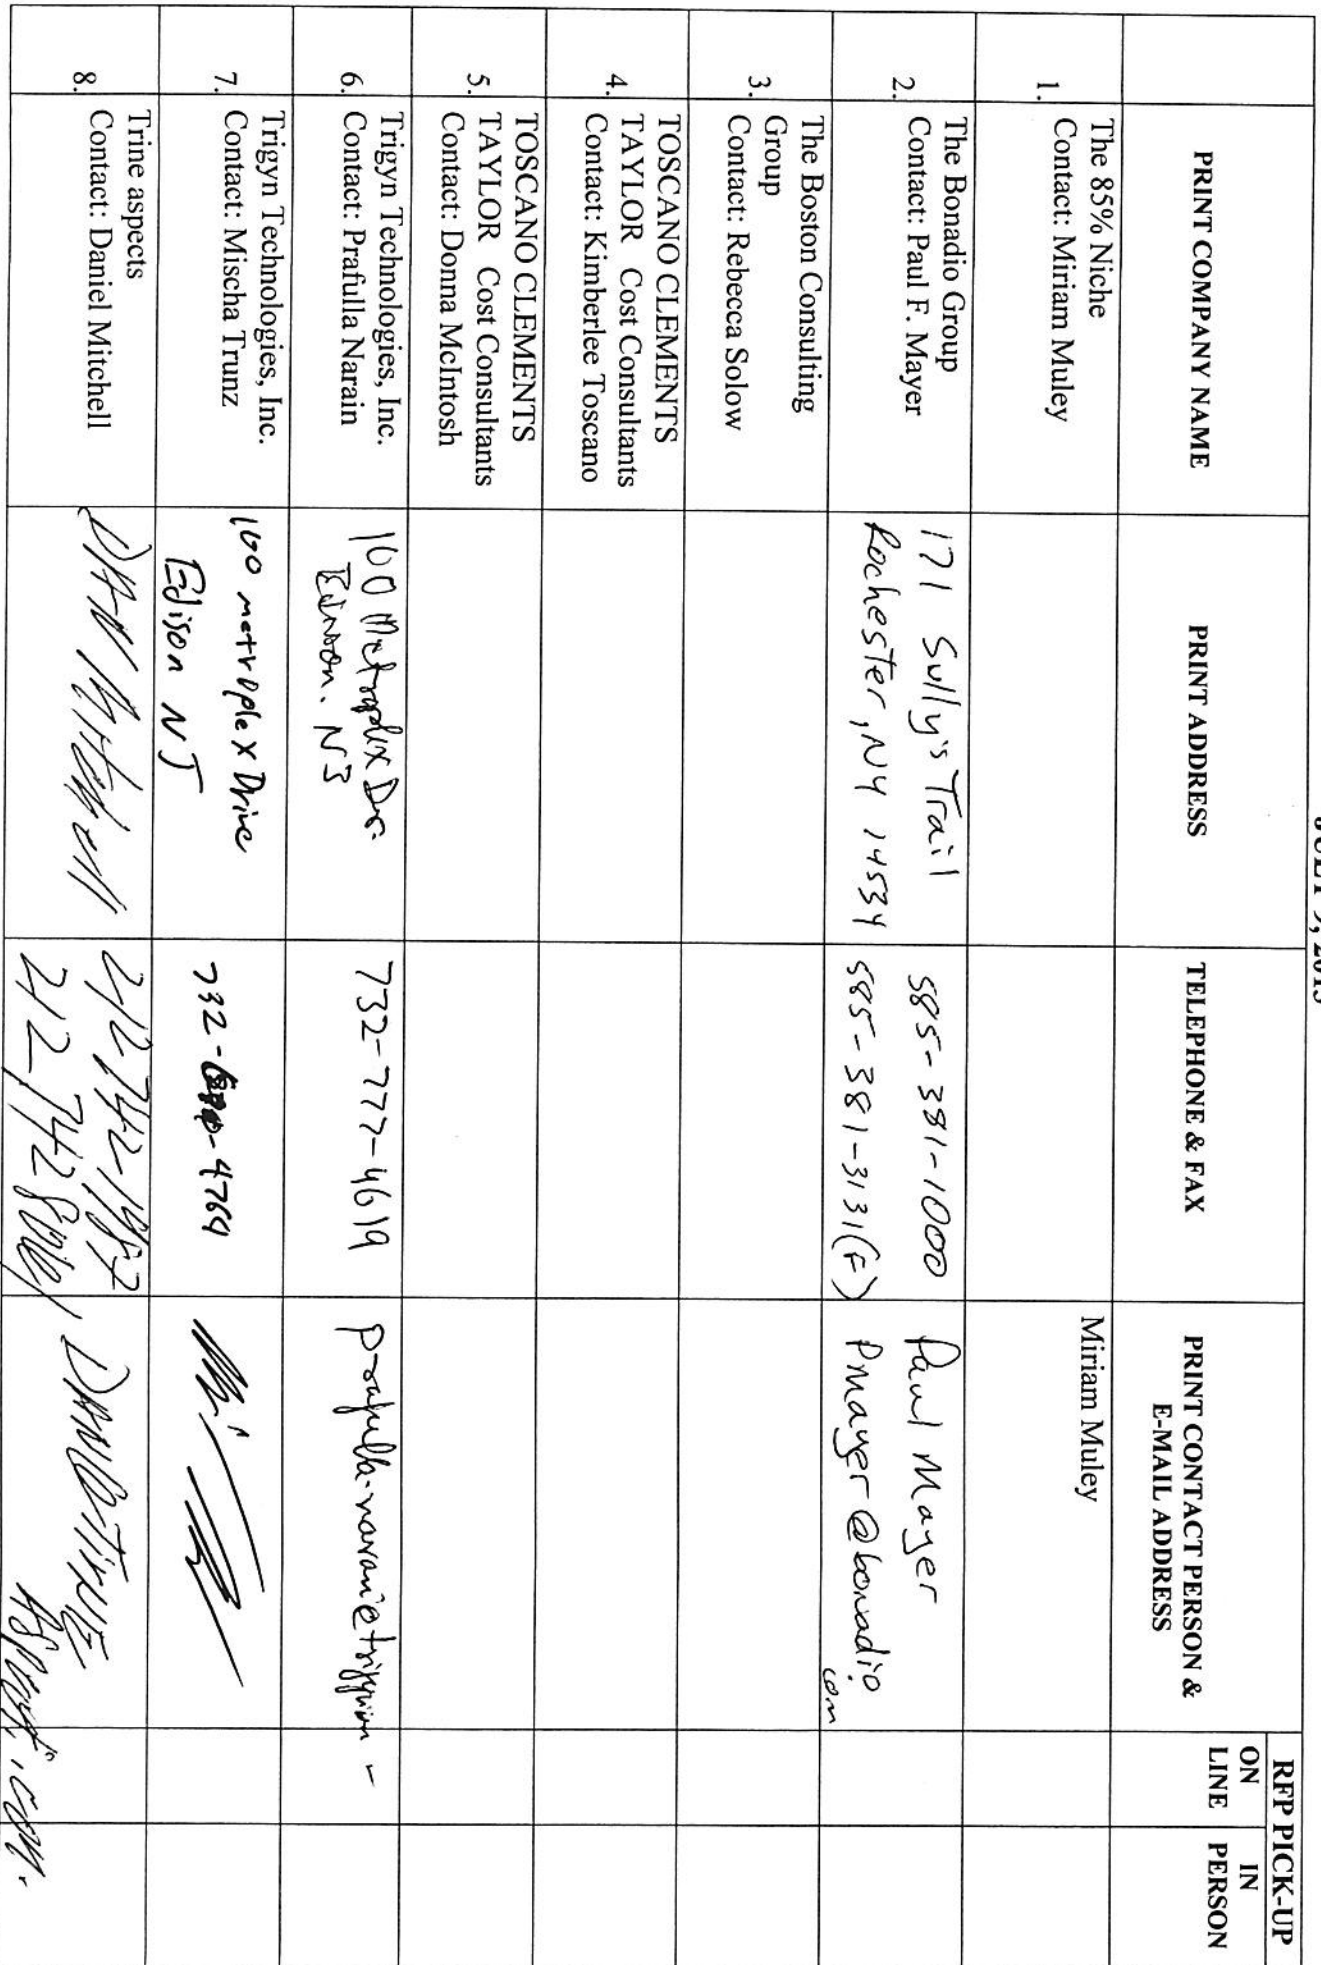 RFP PICK-UP
PRINT COMPANY NAME
PRINT ADDRESS
TELEPHONE & FAX
PRINT CONTACT PERSON &
E-MAIL ADDRESS
ON
LINE
IN
PERSON
1.
The 85% Niche
Contact: Miriam Muley
Miriam Muley
2.
The Bonadio Group
Contact: Paul F. Mayer
171 Sully's Trail
Rochester, NY 14534
585-381-1000
585-381-3131(F)
Paul Mayer
Pmayer@bonadio
com
3.
The Boston Consulting
Group
Contact: Rebecca Solow
4.
TOSCANO CLEMENTS
TAYLOR Cost Consultants
Contact: Kimberlee Toscano
5.
TOSCANO CLEMENTS
TAYLOR Cost Consultants
Contact: Donna McIntosh
6.
Trigyn Technologies, Inc.
Contact: Prafulla Narain
100 Metroplex Dr.
Edison. NJ
732-777-4619
7.
Trigyn Technologies, Inc.
Contact: Mischa Trunz
100 metroplex Drive
Edison NJ
732- -4764
8.
Trine aspects
Contact: Daniel Mitchell
DAN Mitchell